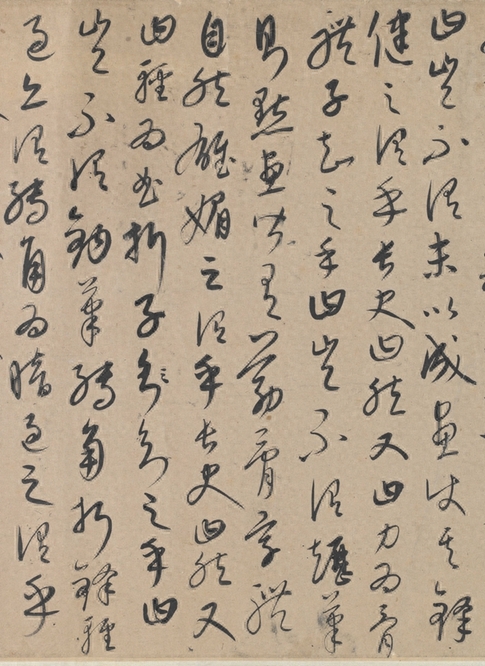 曰豈不謂末以成畫使其鋒
健之謂乎長史曰然又曰力為骨
體子知之乎曰豈不謂趯筆
則點畫皆有筋骨字體
自然雄媚之謂乎長史曰然又
曰輕為曲折子知之乎曰
豈不謂鉤筆轉角折鋒輕
過亦謂轉角為暗過之謂乎